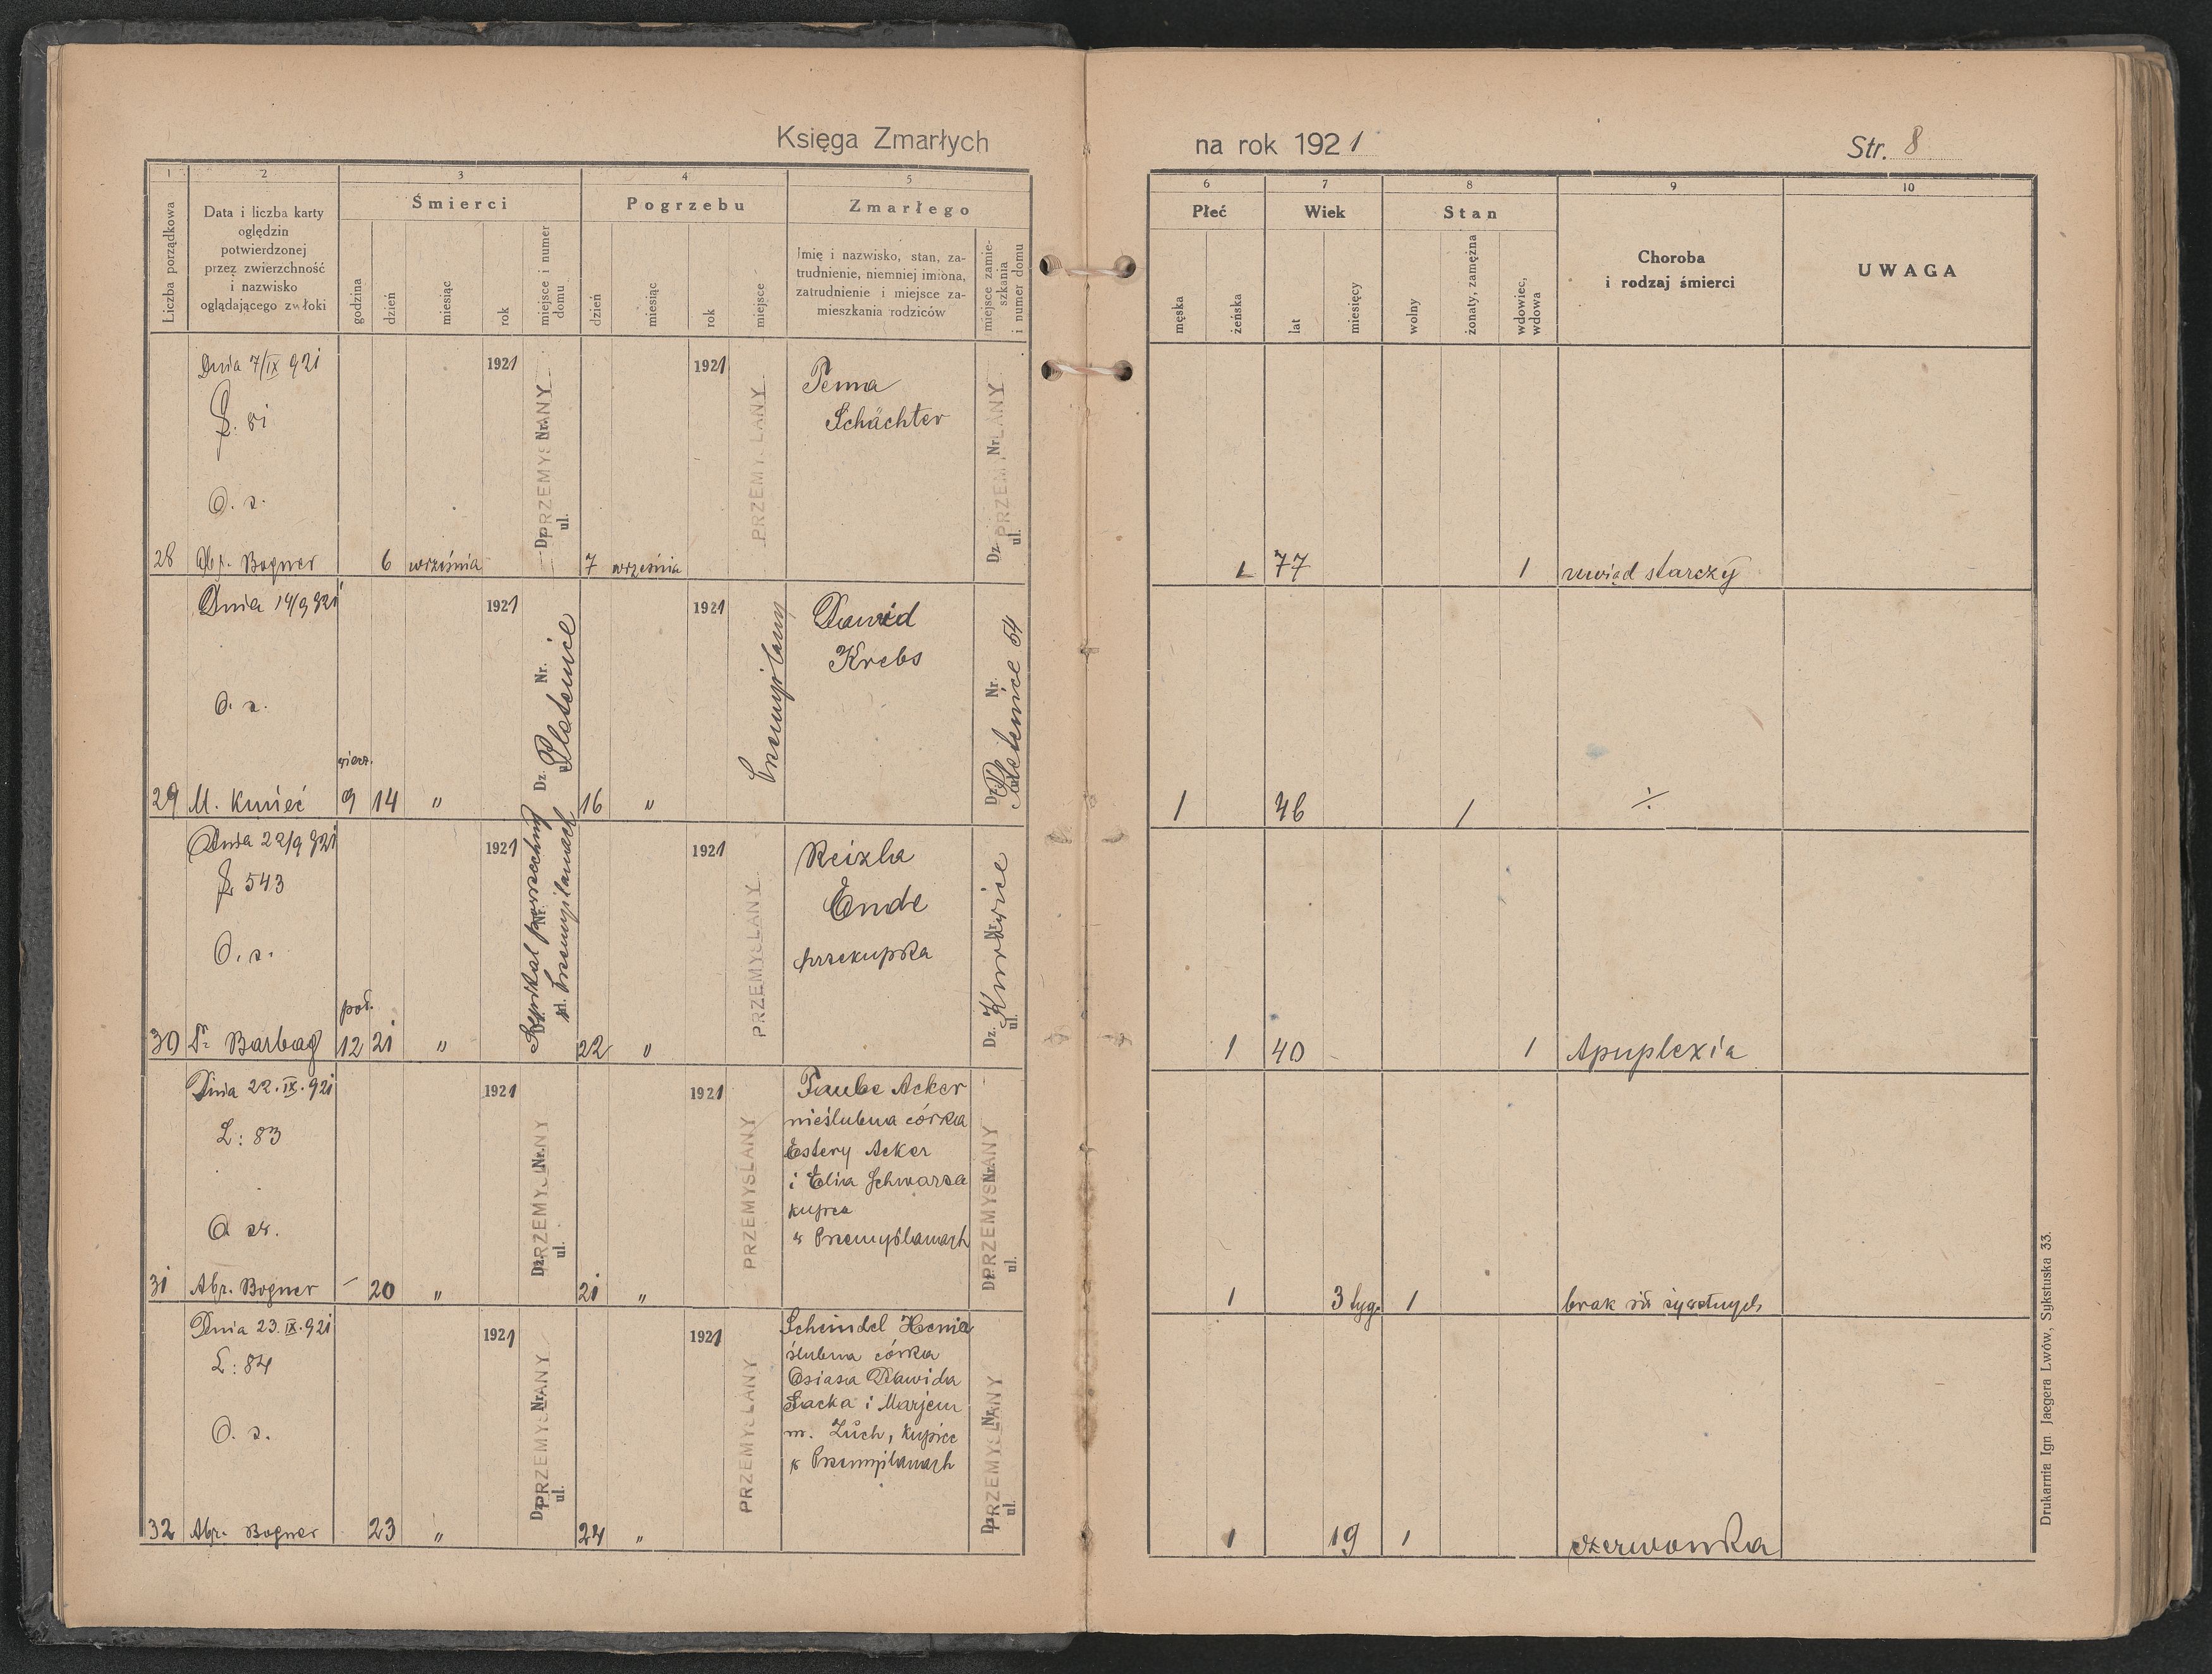 Księga Zmarłych
na rok 1921
Str. 8
1 2 3 4 5
Liczba porządkowa
Data i liczba karty
oględzin
potwierdzonej
przez zwierzchność
i nazwisko
oglądającego zwłoki
Śmierci
godzina
dzień
miesiąc
rok
miejsce i numer
domu
Pogrzebu
dzień
miesiąc
rok
miejsce
Zmarłego
Imię i nazwisko, stan, za-
trudnienie, niemniej imiona,
zatrudnienie i miejsce za-
mieszkania rodziców
miejsce zamie-
szkania
i numer domu
6 7 8 9 10
Płeć
męska
żeńska
Wiek
lat
miesięcy
Stan
wolny
żonaty, zamężna
wdowiec,
wdowa
Choroba
i rodzaj śmierci
UWAGA
Dnia 7/IX 921
L. 81
O. z.
28 Abr. Bogner 6 września 1921
Dz. Nr. ul.
PRZEMYSLANY
7 września 1921
PRZEMYSLANY
Penna
Schächter
Dz. Nr. ul.
PRZEMYSLANY
1 77 1 uwiąd starczy
Dnia 14/9 921
O. z.
29 M. Kmieć
wiecz.
9 14 " 1921
Dz. Nr.
Pletenice
16 " 1921
Przemyślany
Dawid
Krebs
Dz. Nr.
Pletenice 54
1 46 1 ÷
Dnia 22/9 921
L. 543
O. z.
30 Dr Barbag
poł.
12 21 " 1921
Szpital powszechny
w Przemyślanach
22 " 1921
PRZEMYSLANY
Reizla
Ende
przekupka
Dz. Nr. ul.
Kurowice
1 40 1 Apuplexia
Dnia 22.IX.921
L: 83
O. zw.
31 Abr. Bogner – 20 " 1921
Dz. Nr. ul.
PRZEMYSLANY
21 " 1921
PRZEMYSLANY
Taube Acker
nieślubna córka
Estery Acker
i Elia Schwarza
kupca
w Przemyślanach
Dz. Nr. ul.
PRZEMYSLANY
1 3 tyg. 1 brak sił żywotnych
Dnia 23.IX.921
L: 84
O. z.
32 Abr. Bogner 23 " 1921
Dz. Nr. ul.
PRZEMYSLANY
24 " 1921
PRZEMYSLANY
Scheindel Henia
ślubna córka
Osiasa Dawida
Sacka i Marjem
m. Zuch, kupiec
w Przemyślanach
Dz. Nr. ul.
PRZEMYSLANY
1 19 1 czerwonka
Drukarnia Ign Jaegera Lwów, Sykstuska 33.